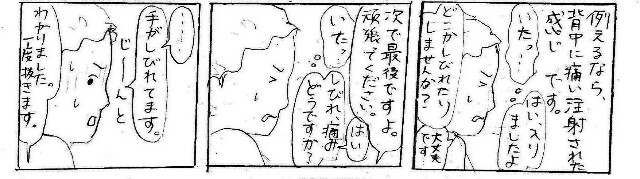 例えるなら、
背中に痛い注射された
感じ です。
いたっ…
はい、入り
ましたよ
どこかしびれたり
しませんか？
大丈夫
です…
次で最後ですよ。
頑張てください。
はい
いたっ…
しびれ、痛み
どうですか？
……
手がしびれてます。
じーんと
わかりました。
一度抜きます。